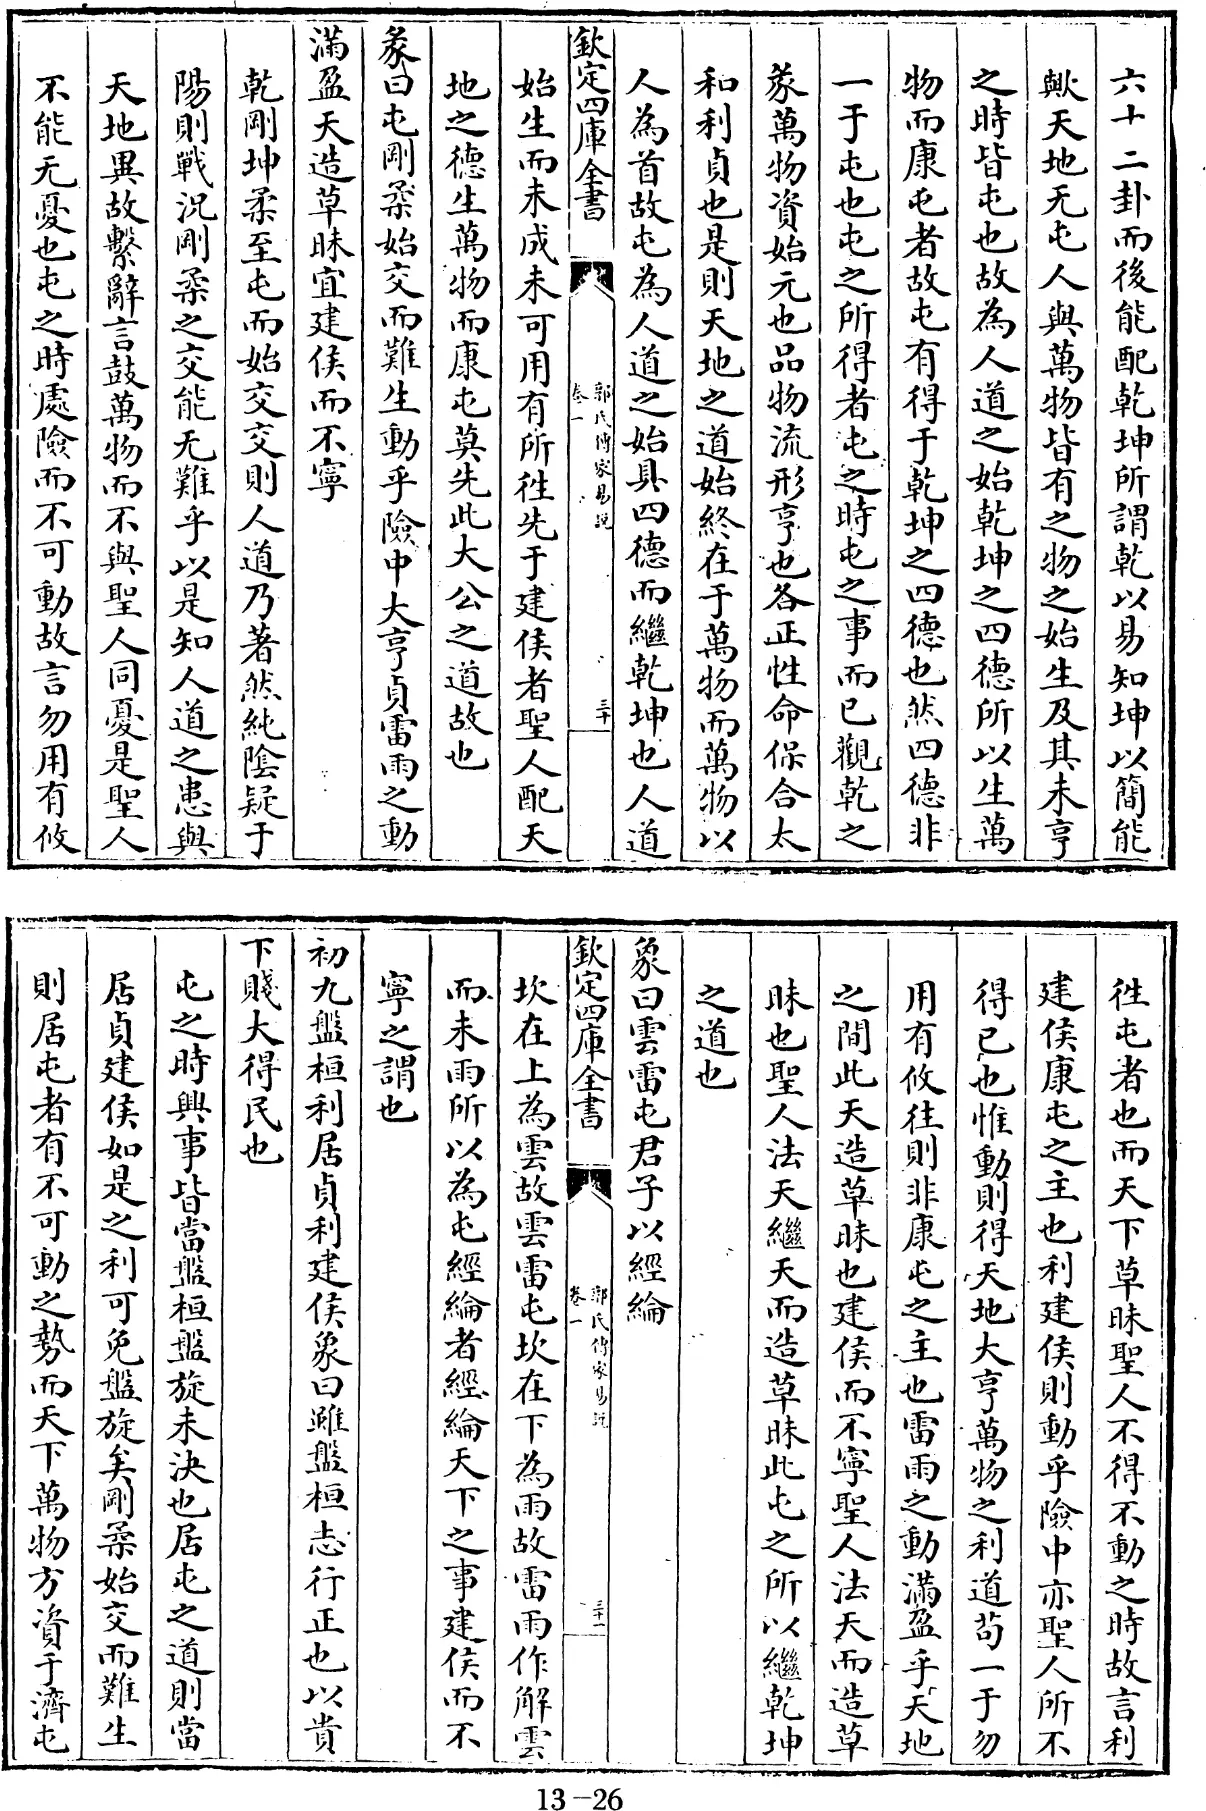 六十二卦而後能配乾坤所謂乾以易知坤以簡能
歟天地无屯人與萬物皆有之物之始生及其未亨
之時皆屯也故為人道之始乾坤之四德所以生萬
物而康屯者故屯有得于乾坤之四德也然四德非
一于屯也屯之所得者屯之時屯之事而已觀乾之
彖萬物資始元也品物流形亨也各正性命保合太
和利貞也是則天地之道始終在于萬物而萬物以
人為首故屯為人道之始具四德而繼乾坤也人道
欽定四庫全書
郭氏傳家易說
卷一
三十
始生而未成未可用有所往先于建侯者聖人配天
地之德生萬物而康屯莫先此大公之道故也
彖曰屯剛柔始交而難生動乎險中大亨貞雷雨之動
滿盈天造草昧宜建侯而不寧
乾剛坤柔至屯而始交交則人道乃著然純陰疑于
陽則戰況剛柔之交能无難乎以是知人道之患與
天地異故繫辭言鼓萬物而不與聖人同憂是聖人
不能无憂也屯之時處險而不可動故言勿用有攸
往屯者也而天下草昧聖人不得不動之時故言利
建侯康屯之主也利建侯則動乎險中亦聖人所不
得已也惟動則得天地大亨萬物之利道苟一于勿
用有攸往則非康屯之主也雷雨之動滿盈乎天地
之間此天造草昧也建侯而不寧聖人法天而造草
昧也聖人法天繼天而造草昧此屯之所以繼乾坤
之道也
象曰雲雷屯君子以經綸
欽定四庫全書
郭氏傳家易說
卷一
三十一
坎在上為雲故雲雷屯坎在下為雨故雷雨作解雲
而未雨所以為屯經綸者經綸天下之事建侯而不
寧之謂也
初九盤桓利居貞利建侯象曰雖盤桓志行正也以貴
下賤大得民也
屯之時興事皆當盤桓盤旋未決也居屯之道則當
居貞建侯如是之利可免盤旋矣剛柔始交而難生
則居屯者有不可動之勢而天下萬物方資于濟屯
13-26